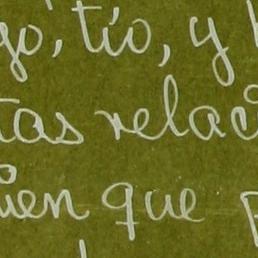 go, tío, y
tas relac
ien que